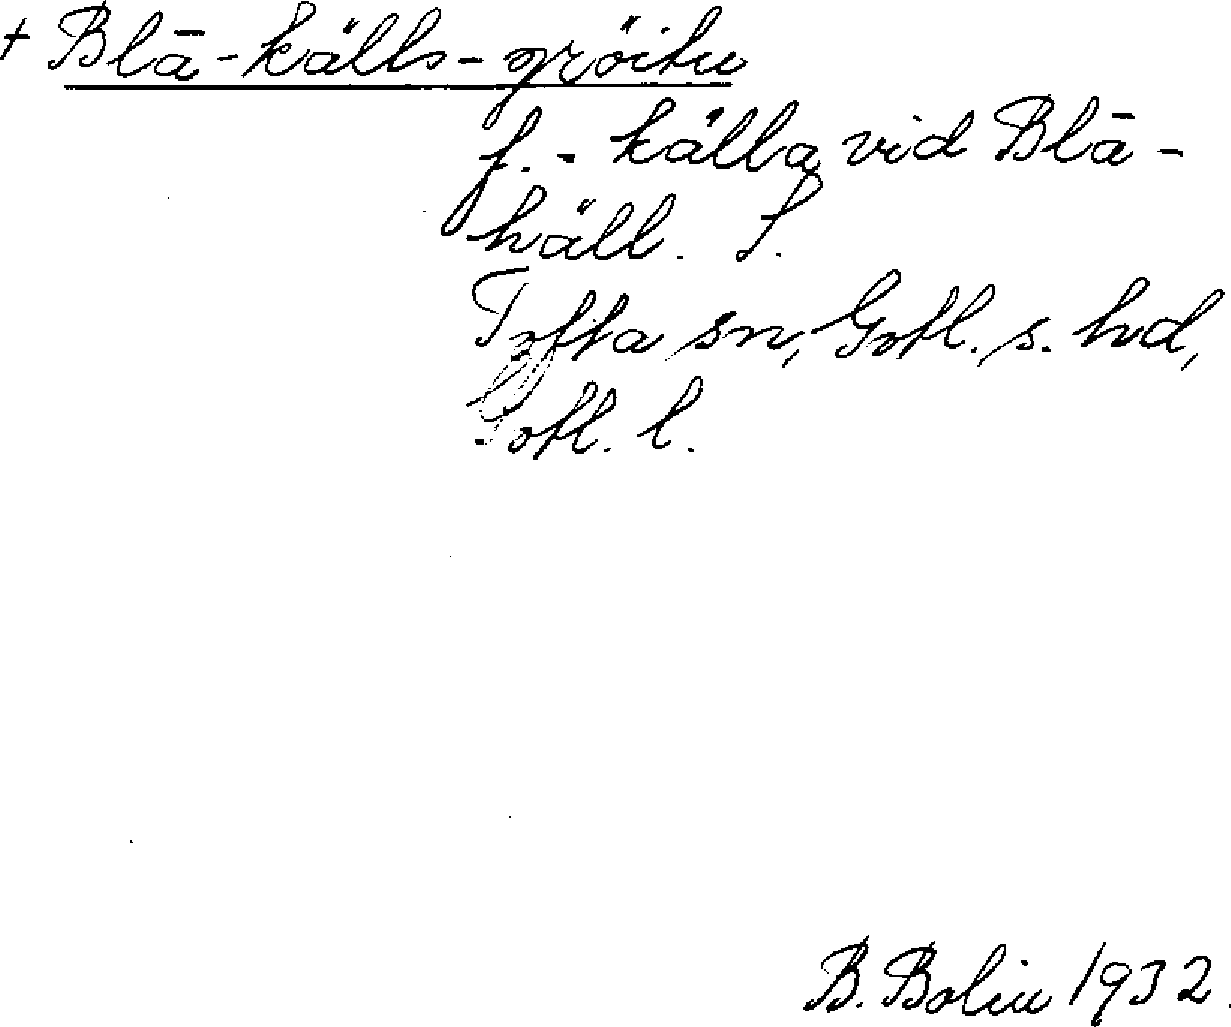 + Blā-källs-gröitu
f. - källa vid Blā-
häll. S.
Tofta sn, Gotl. s. hd,
Gotl. l.
B. Bolin 1932.